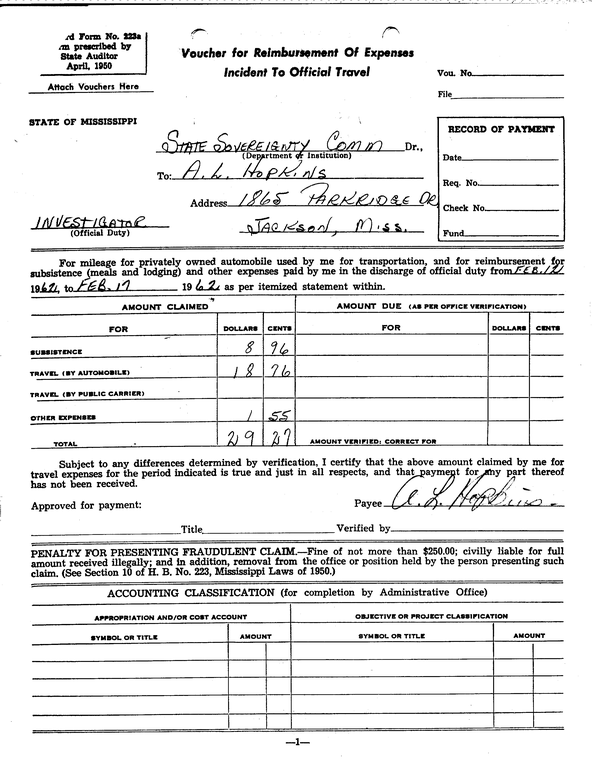 rd Form No. 223a
m prescribed by
State Auditor
April, 1950
Attach Vouchers Here
Voucher for Reimbursement Of Expenses
Incident To Official Travel
Vou. No.
File
STATE OF MISSISSIPPI
STATE SOVEREIGNTY COMM Dr.,
(Department or Institution)
To: A. L. HOPKINS
Address 1865 PARKRIDGE DR
INVESTIGATOR JACKSON, MISS.
(Official Duty)
RECORD OF PAYMENT
Date
Req. No.
Check No.
Fund
For mileage for privately owned automobile used by me for transportation, and for reimbursement for
subsistence (meals and lodging) and other expenses paid by me in the discharge of official duty from FEB. 12
1962, to FEB. 17 1962 as per itemized statement within.
AMOUNT CLAIMED AMOUNT DUE (AS PER OFFICE VERIFICATION)
FOR DOLLARS CENTS FOR DOLLARS CENTS
SUBSISTENCE 8 96
TRAVEL (BY AUTOMOBILE) 18 76
TRAVEL (BY PUBLIC CARRIER)
OTHER EXPENSES 1 55
TOTAL 29 27 AMOUNT VERIFIED: CORRECT FOR
Subject to any differences determined by verification, I certify that the above amount claimed by me for
travel expenses for the period indicated is true and just in all respects, and that payment for any part thereof
has not been received.
Approved for payment: Payee A. L. Hopkins
Title Verified by
PENALTY FOR PRESENTING FRAUDULENT CLAIM.—Fine of not more than $250.00; civilly liable for full
amount received illegally; and in addition, removal from the office or position held by the person presenting such
claim. (See Section 10 of H. B. No. 223, Mississippi Laws of 1950.)
ACCOUNTING CLASSIFICATION (for completion by Administrative Office)
APPROPRIATION AND/OR COST ACCOUNT OBJECTIVE OR PROJECT CLASSIFICATION
SYMBOL OR TITLE AMOUNT SYMBOL OR TITLE AMOUNT
—1—